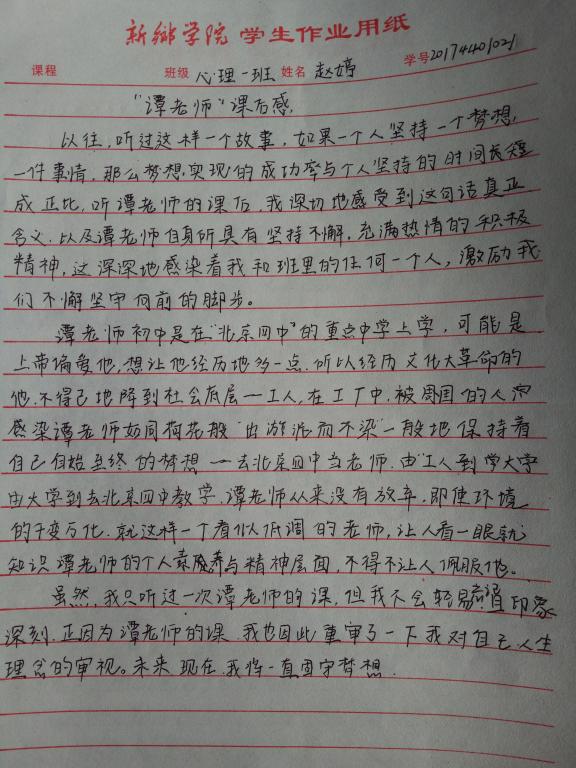 新乡学院 学生作业用纸
课程 班级 心理一班 姓名 赵婷 学号 20174401021
"谭老师"课后感
以往,听过这样一个故事,如果一个人坚持一个梦想,
一件事情,那么梦想实现的成功率与个人坚持的时间长短
成正比,听谭老师的课后,我深切地感受到这句话真正
含义,以及谭老师自身所具有坚持不懈,充满热情的积极
精神,这深深地感染着我和班里的任何一个人,激励我
们不懈坚守向前的脚步。
谭老师初中是在"北京四中"的重点中学上学,可能是
上帝偏爱他,想让他经历地多一点,所以经历文化大革命的
他,不得已地降到社会底层一工人,在工厂中,被周围的人
感染谭老师如同荷花般"出淤泥而不染"一般地保持着
自己自始至终的梦想一去北京四中当老师,由"工人到学大学
由大学到去北京四中教学,谭老师从来没有放弃,即使环境
的千变万化,就这样一个看似低调的老师,让人看一眼就
知识谭老师的个人素养与精神层面,不得不让人佩服他。
虽然,我只听过一次谭老师的课,但我不会轻易 印象
深刻,正因为谭老师的课,我也因此重审了一下我对自己人生
理念的审视。未来,现在,我将一直固守梦想.